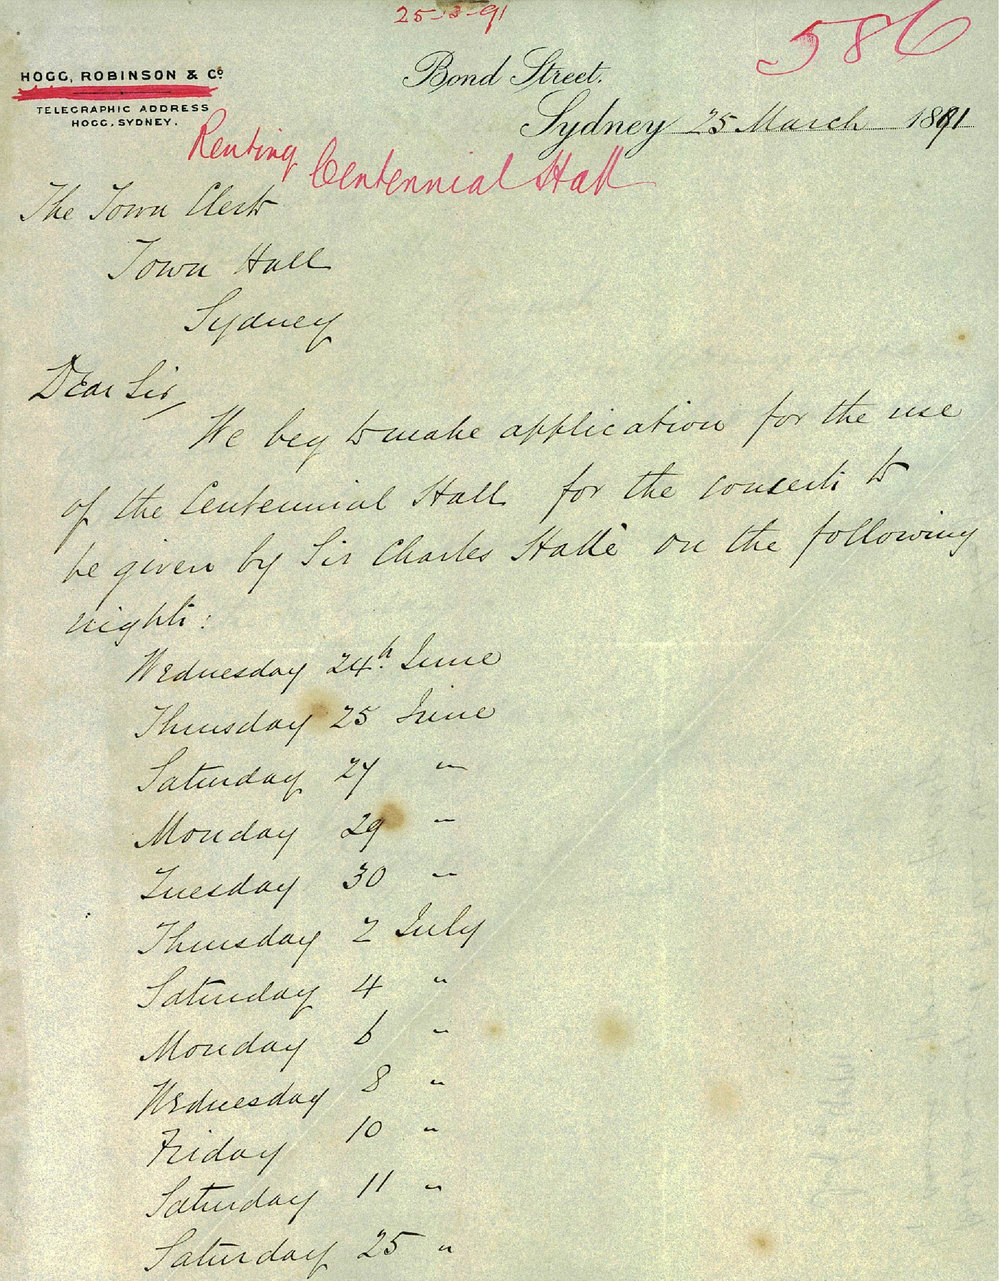 25-3-91
586
HOGG, ROBINSON & Co
TELEGRAPHIC ADDRESS
HOGG, SYDNEY.
Bond Street.
Sydney 25 March 1891
Renting Centennial Hall
The Town Clerk
Town Hall
Sydney
Dear Sir,
We beg to make application for the use
of the Centennial Hall for the concerts to
be given by Sir Charles Hallé on the following
nights:
Wednesday 24th June
Thursday 25 June
Saturday 27 "
Monday 29 "
Tuesday 30 "
Thursday 2 July
Saturday 4 "
Monday 6 "
Wednesday 8 "
Friday 10 "
Saturday 11 "
Saturday 25 "